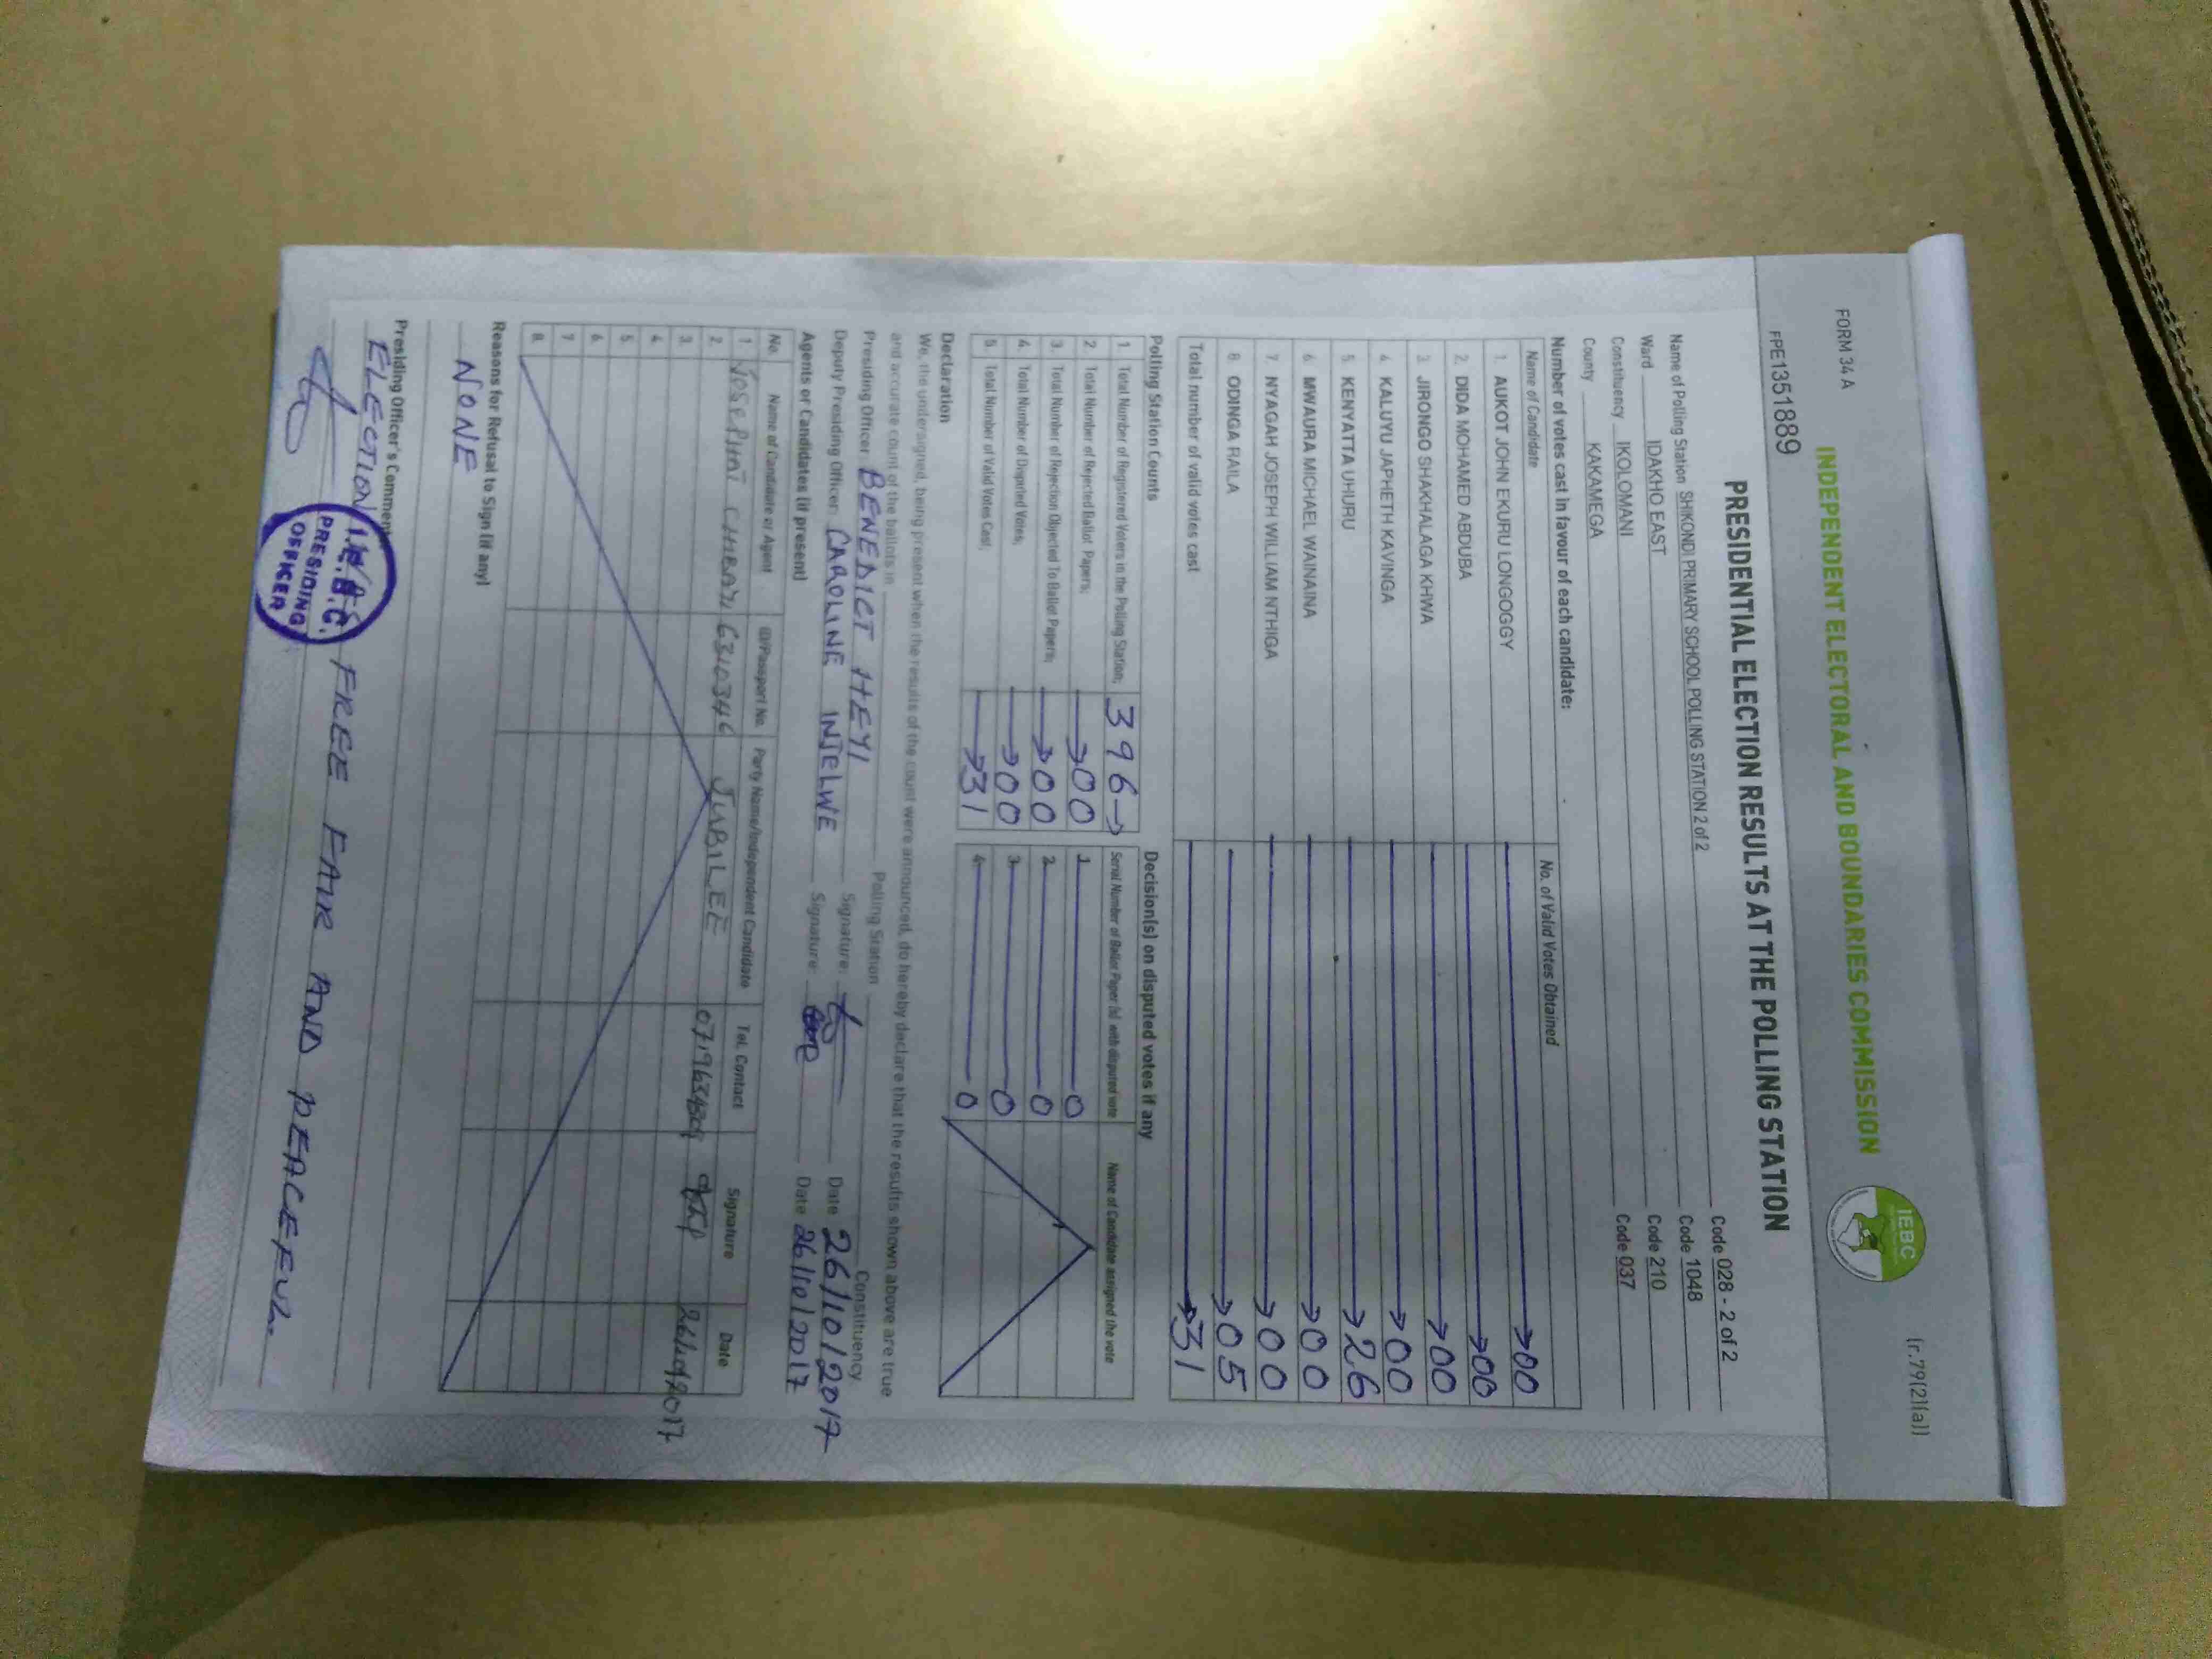 FORM 34 A
(r.79(2)(a))
INDEPENDENT ELECTORAL AND BOUNDARIES COMMISSION
IEBC
FPE1351889
PRESIDENTIAL ELECTION RESULTS AT THE POLLING STATION
Name of Polling Station SHIKONDI PRIMARY SCHOOL POLLING STATION 2 of 2 Code 028 - 2 of 2
Ward IDAKHO EAST Code 1048
Constituency IKOLOMANI Code 210
County KAKAMEGA Code 037
Number of votes cast in favour of each candidate:
Name of Candidate No. of Valid Votes Obtained
1. AUKOT JOHN EKURU LONGOGGY 00
2. DIDA MOHAMED ABDUBA 00
3. JIRONGO SHAKHALAGA KHWA 00
4. KALUYU JAPHETH KAVINGA 00
5. KENYATTA UHURU 26
6. MWAURA MICHAEL WAINAINA 00
7. NYAGAH JOSEPH WILLIAM NTHIGA 00
8. ODINGA RAILA 05
Total number of valid votes cast 31
Polling Station Counts
1. Total Number of Registered Voters in the Polling Station; 396
2. Total Number of Rejected Ballot Papers; 00
3. Total Number of Rejection Objected To Ballot Papers; 00
4. Total Number of Disputed Votes; 00
5. Total Number of Valid Votes Cast; 31
Decision(s) on disputed votes if any
Serial Number of Ballot Paper (s) with disputed vote Name of Candidate assigned the vote
1 0
2 0
3 0
4 0
Declaration
We, the undersigned, being present when the results of the count were announced, do hereby declare that the results shown above are true
and accurate count of the ballots in Polling Station Constituency
Presiding Officer: BENEDICT HEYI Signature: Date 26/10/2017
Deputy Presiding Officer: CAROLINE INJELWE Signature: Date 26/10/2017
Agents or Candidates (if present)
No. Name of Candidate or Agent ID/Passport No. Party Name/Independent Candidate Tel. Contact Signature Date
1. 6310346 JUBILEE 26/10/2017
2.
3.
4.
5.
6.
7.
8.
Reasons for Refusal to Sign (if any)
NONE
Presiding Officer's Comment
ELECTION FREE FAIR AND PEACEFUL.
I.E.B.C.
PRESIDING
OFFICER